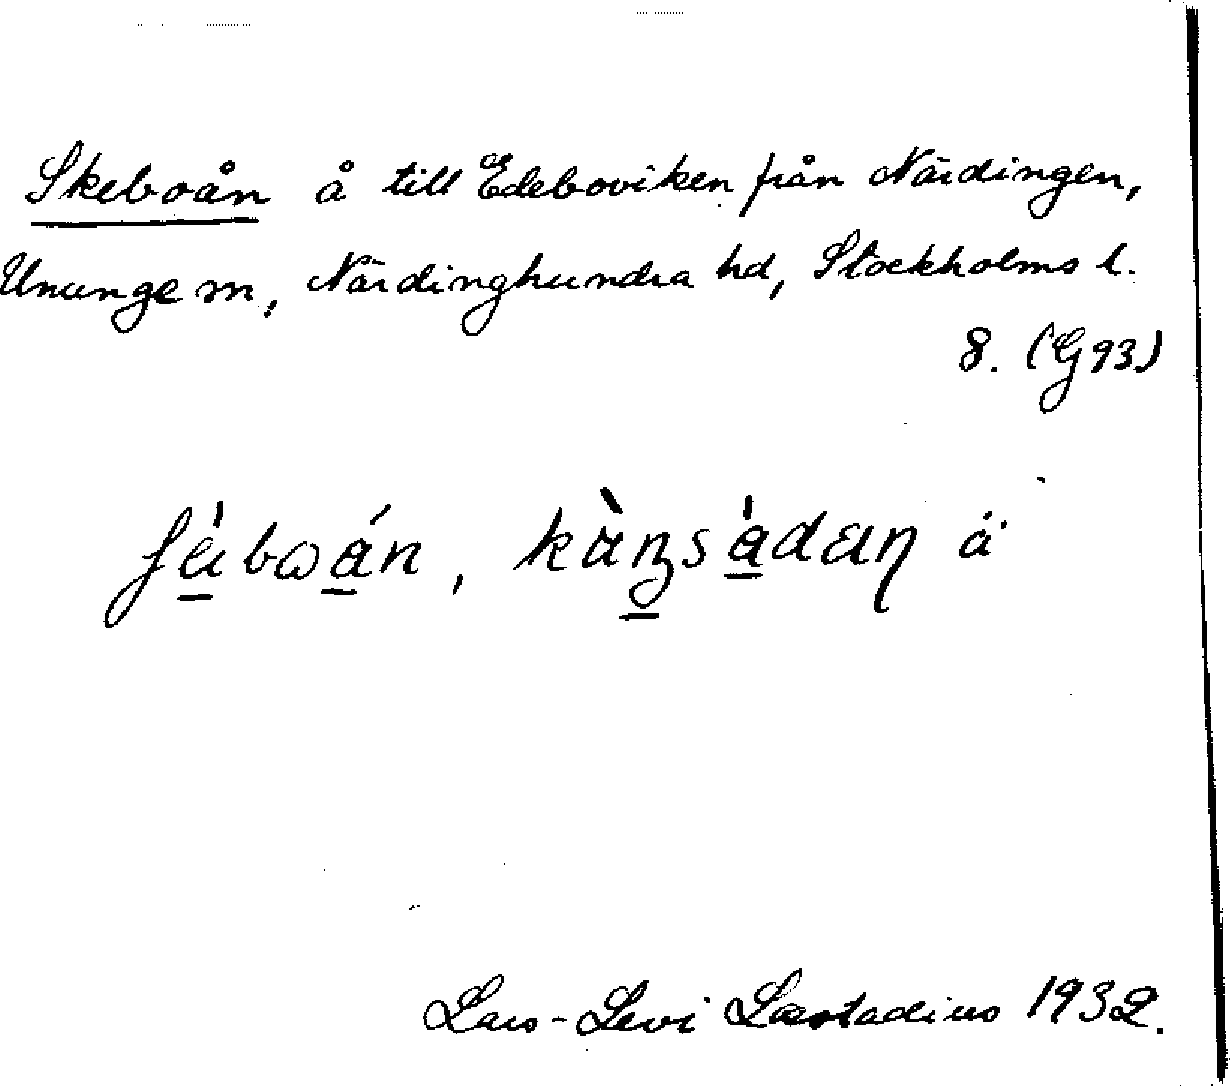 Skeboån å till Edeboviken från Närdingen,
Ununge sn, Närdinghundra hd, Stockholms l.
8. (G93)
Lars-Levi Læstadius 1932.